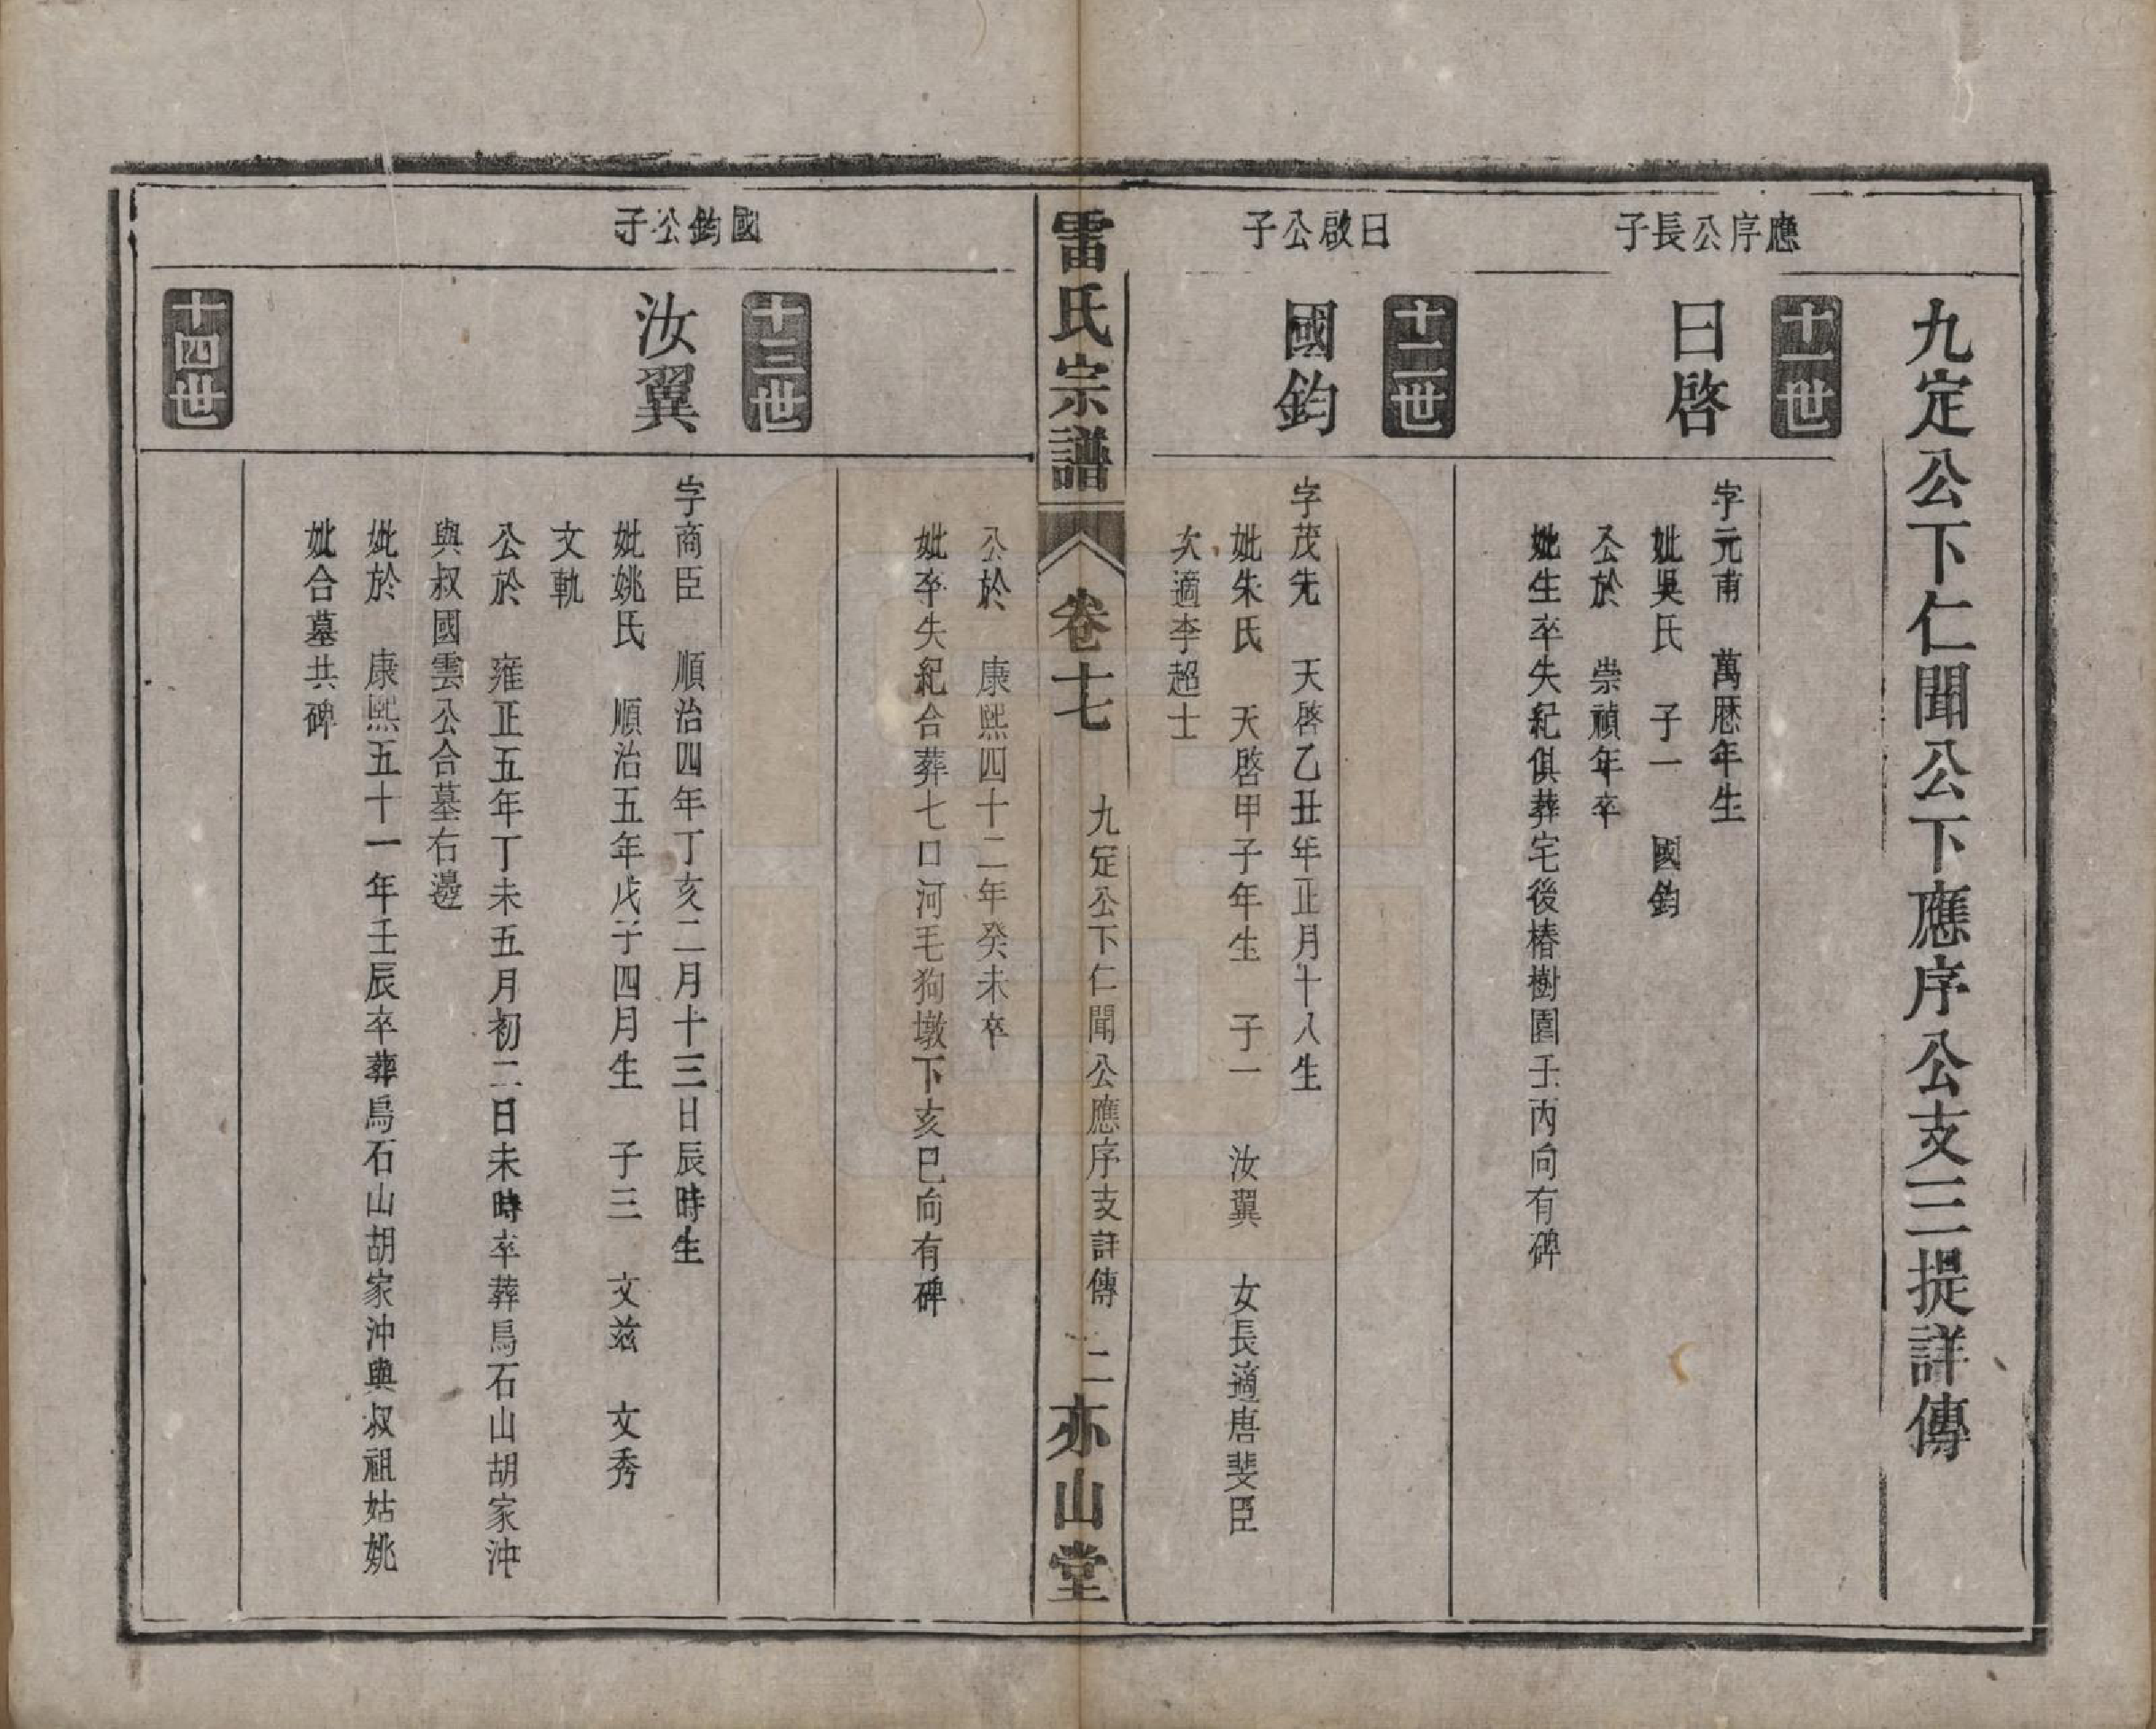 九定公下仁聞公下應序公支三提詳傳
十一世
應序公長子
曰啓
字元甫　萬歷年生
妣吳氏　子一　國鈞
公於　崇禎年卒
妣生卒失紀俱葬宅後椿樹園壬丙向有碑
十二世
曰啟公子
國鈞
字茂先　天啓乙丑年正月十八生
妣朱氏　天啓甲子年生　子一　汝翼　女長適唐斐臣
次適李超士
雷氏宗譜　卷十七　九定公下仁聞公應序支詳傳　二　亦山堂
公於　康熙四十二年癸未卒
妣卒失紀合葬七口河毛狗墩下亥巳向有碑
十三世
國鈞公子
汝翼
字商臣　順治四年丁亥二月十三日辰時生
妣姚氏　順治五年戊子四月生　子三　文茲　文秀
文軌
公於　雍正五年丁未五月初二日未時卒葬烏石山胡家沖
與叔國雲公合墓右邊
妣於　康熙五十一年壬辰卒葬烏石山胡家沖與叔祖姑姚
妣合墓共碑
十四世